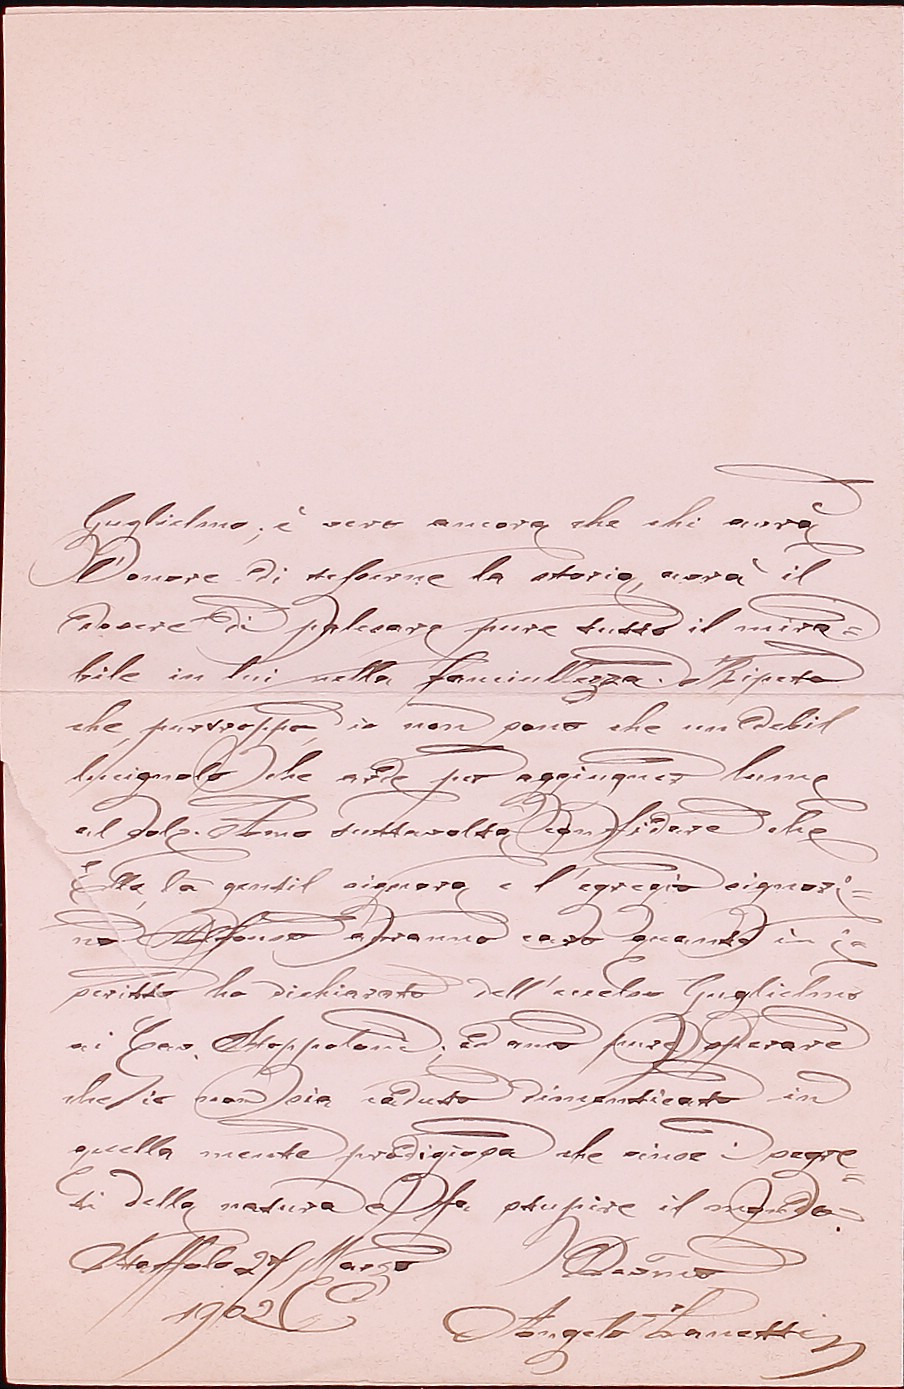 Guglielmo; è vero ancora che chi avrà
l'onore di tesserne la storia, avrà il
dovere di palesare pure tutto il mira=
bile in lui nella fanciullezza. Ripeto
che, purtroppo, io non sono che un debil
lucignolo che arde per aggiunger lume
al sole. Amo tuttavolta confidare che
Ella, la gentil signora e l'egregio signori=
no Alfonso avranno caro quanto in
scritto ho dichiarato dell'eccelso Guglielmo
ai Cav. Stoppoloni; ed amo pure sperare
che io non sia caduto dimenticato in
quella mente prodigiosa che vinse i segre=
ti della natura e fa stupire il mondo.
Staffolo 27 Marzo Dev.mo
1902
Angelo Zanetti